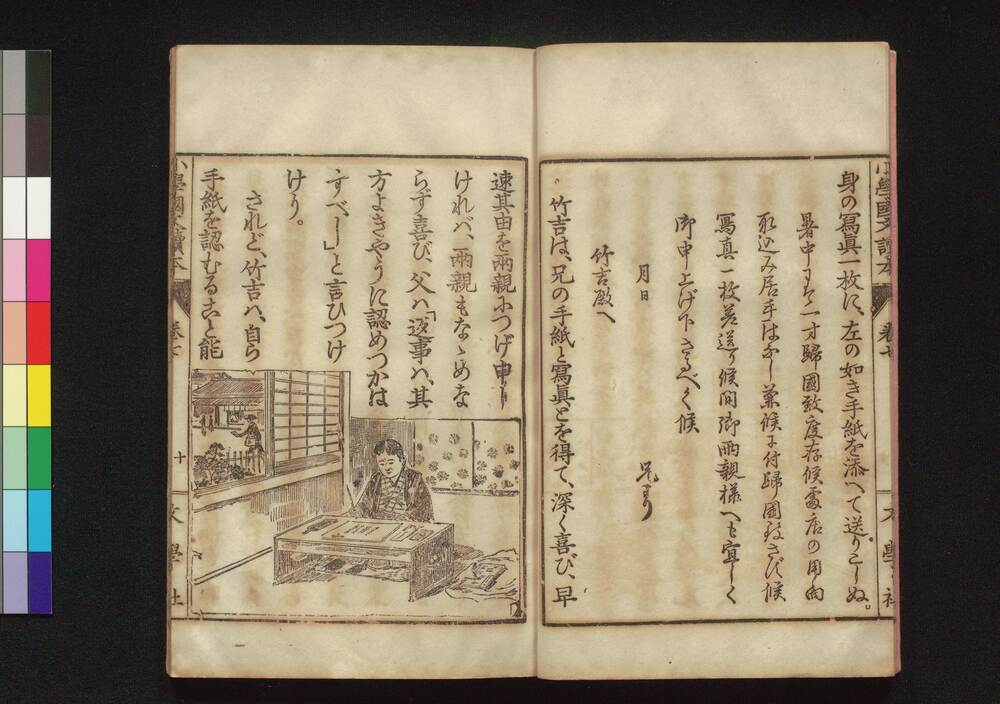 身の寫眞一枚に、左の如き手紙を添へて送りこしぬ。
暑中にも一寸歸國致度存候處店の用向
取込み居手はなし兼候に付歸國致さび候
寫真一枚差送り候間御兩親様へも宜しく
御申上げ下さるべく候
月日
兄より
竹吉殿へ
竹吉は、兄の手紙と寫眞とを得て、深く喜び、早
小學國文讀本
卷七
文學社
速其由を兩親につげ申し
けれバ、兩親もなゝめな
らず喜び、父ハ「返事ハ、其
方よきやうに認めつかは
すべし」と言ひつけ
けり。
されど、竹吉ハ、自ら
手紙を認むること能
小學國文讀本
卷七
十
文學社